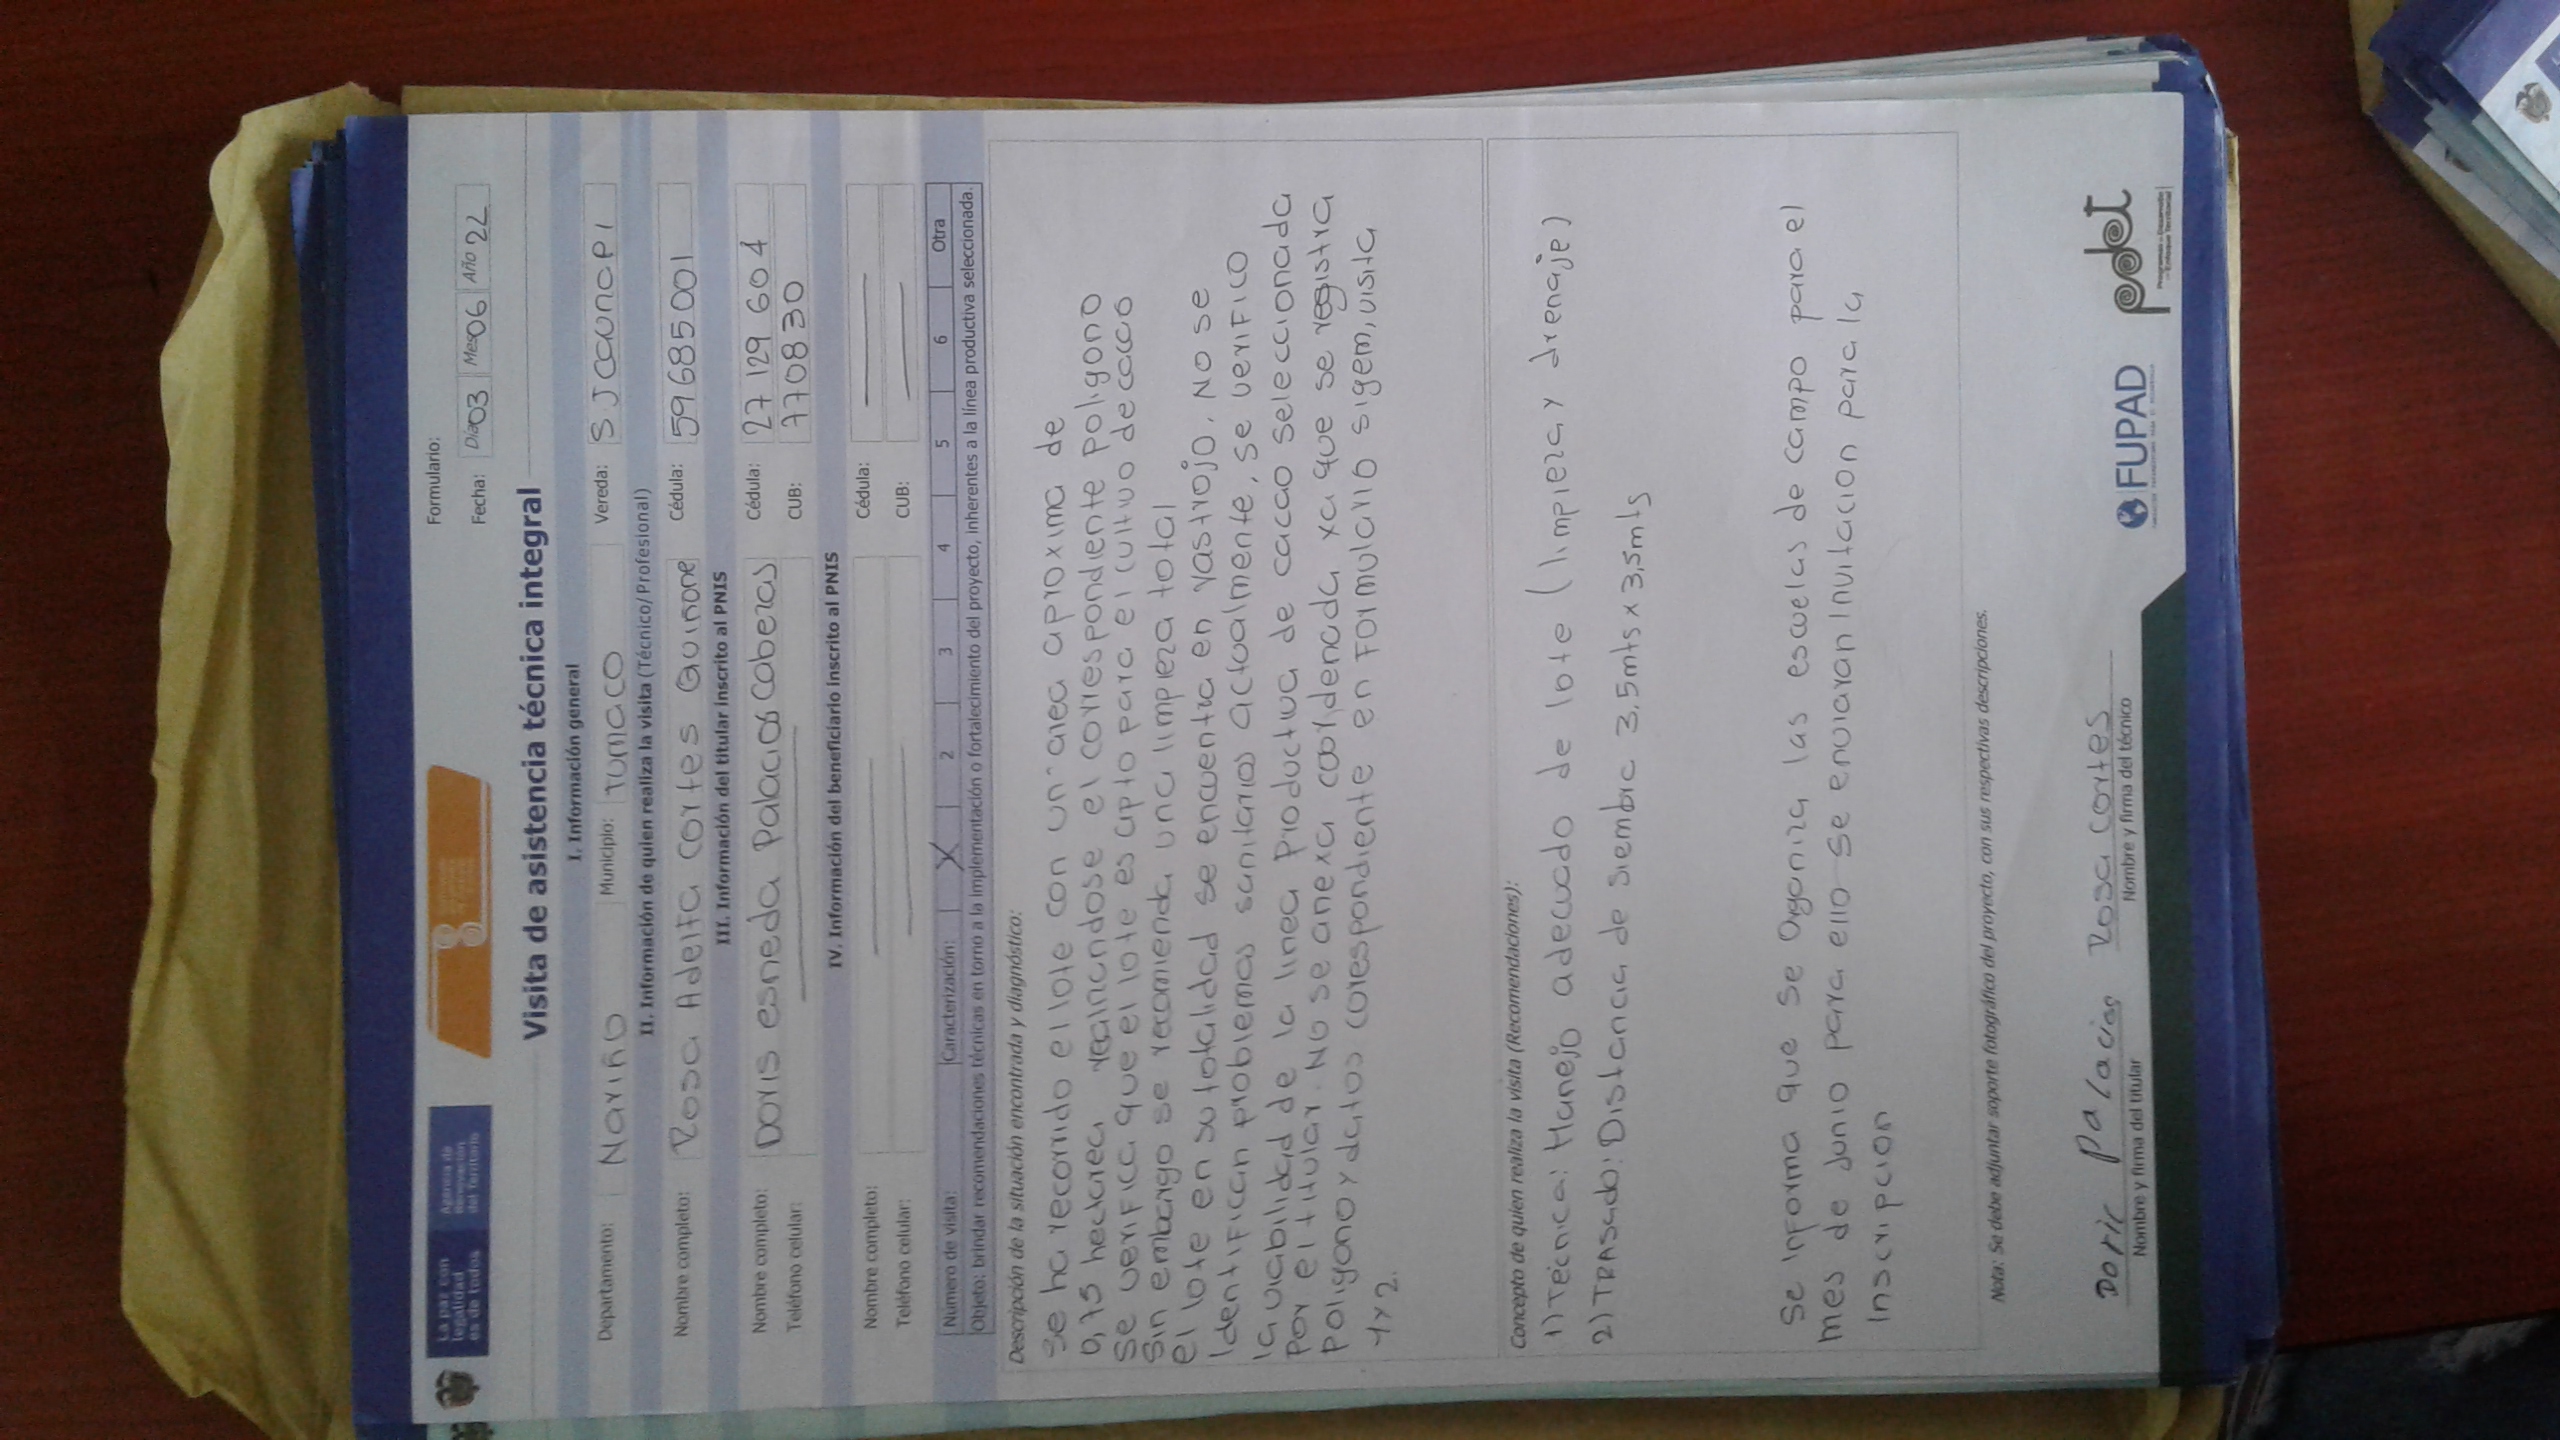 La paz con
legalidad
es de todos
Agencia de
Renovación
del Territorio
Formulario:
Fecha: Día 03 Mes 06 Año 22
Visita de asistencia técnica integral
I. Información general
Departamento: Nariño Municipio: TUMACO Vereda: S.J Caunapi
II. Información de quien realiza la visita (Técnico/Profesional)
Nombre completo: Rosa Adelfa Cortes Quiñone Cédula: 59685001
III. Información del titular inscrito al PNIS
Nombre completo: Doris esneda Palacios Cabezas Cédula: 27 129 604
Teléfono celular: CUB: 7708830
IV. Información del beneficiario inscrito al PNIS
Nombre completo: Cédula:
Teléfono celular: CUB:
Número de visita: Caracterización: X 2 3 4 5 6 Otra
Objeto: brindar recomendaciones técnicas en torno a la implementación o fortalecimiento del proyecto, inherentes a la línea productiva seleccionada.
Descripción de la situación encontrada y diagnóstico:
se ha recorrido el lote con un area aproxima de
0,75 hectarea realizandose el correspondiente poligono
se verifica que el lote es apto para el cultivo de cacao
sin embargo se recomienda una limpieza total
el lote en su totalidad se encuentra en rastrojo. No se
identifican problemas sanitarios actualmente, se verifico
la viabilidad de la linea productiva de cacao seleccionada
por el titular. No se anexa cordenada ya que se registra
poligono y datos corespondiente en formulario sigem, visita
1 y 2.
Concepto de quien realiza la visita (Recomendaciones):
1) Tecnica: Manejo adecuado de lote (limpieza y drenaje)
2) TRASado: Distancia de siembra 3,5mts x 3,5mts
se informa que se organiza las escuelas de campo para el
mes de Junio para ello se enviaran invitacion para la
inscripcion
Nota: Se debe adjuntar soporte fotográfico del proyecto, con sus respectivas descripciones.
Doris Palacios
Nombre y firma del titular
Rosa Cortes
Nombre y firma del técnico
FUPAD
pdet
Programas de Desarrollo
con Enfoque Territorial